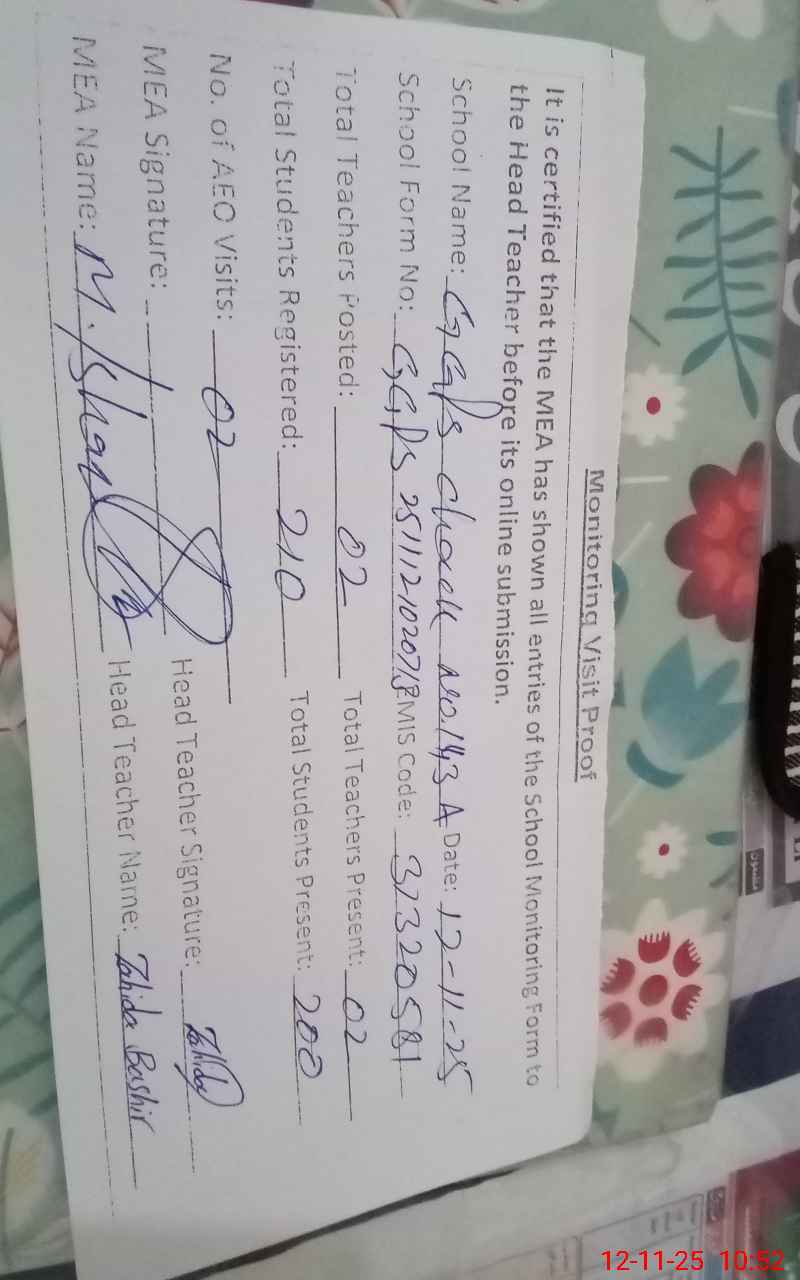 Monitoring Visit Proof
It is certified that the MEA has shown all entries of the School Monitoring Form to
the Head Teacher before its online submission.
School Name: GGPS Chack No.143 A Date: 12-11-25
School Form No: GGPS MIS Code: 37320581
Total Teachers Posted: 02 Total Teachers Present: 02
Total Students Registered: 210 Total Students Present: 200
No. of AEO Visits: 02
MEA Signature: Head Teacher Signature: Zahida
MEA Name: M. Head Teacher Name: Zahida Bashir
12-11-25 10:52